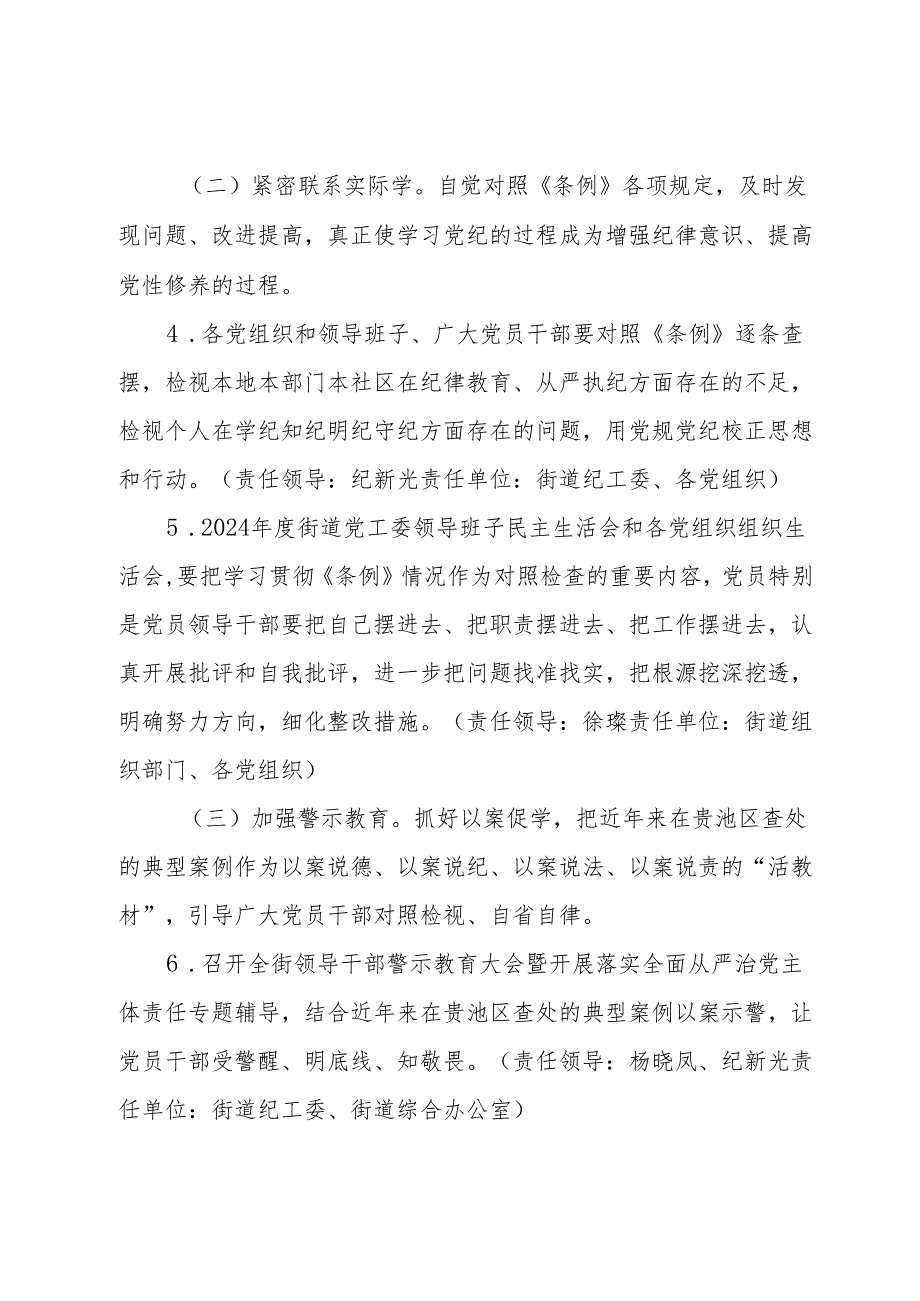 （二）紧密联系实际学。自觉对照《条例》各项规定，及时发
现问题、改进提高，真正使学习党纪的过程成为增强纪律意识、提高
党性修养的过程。
4 .各党组织和领导班子、广大党员干部要对照《条例》逐条查
摆，检视本地本部门本社区在纪律教育、从严执纪方面存在的不足，
检视个人在学纪知纪明纪守纪方面存在的问题，用党规党纪校正思想
和行动。（责任领导：纪新光责任单位：街道纪工委、各党组织）
5 .2024年度街道党工委领导班子民主生活会和各党组织组织生
活会,要把学习贯彻《条例》情况作为对照检查的重要内容，党员特别
是党员领导干部要把自己摆进去、把职责摆进去、把工作摆进去，认
真开展批评和自我批评，进一步把问题找准找实，把根源挖深挖透，
明确努力方向，细化整改措施。（责任领导：徐璨责任单位：街道组
织部门、各党组织）
（三）加强警示教育。抓好以案促学，把近年来在贵池区查处
的典型案例作为以案说德、以案说纪、以案说法、以案说责的“活教
材”，引导广大党员干部对照检视、自省自律。
6 .召开全街领导干部警示教育大会暨开展落实全面从严治党主
体责任专题辅导，结合近年来在贵池区查处的典型案例以案示警，让
党员干部受警醒、明底线、知敬畏。（责任领导：杨晓凤、纪新光责
任单位：街道纪工委、街道综合办公室）